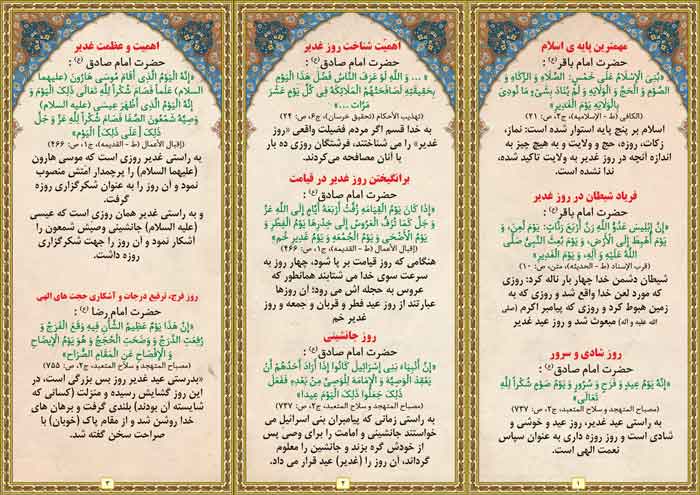 مهمترین پایه ی اسلام
حضرت امام باقر (ع) :
«بُنِیَ الْإِسْلَامُ عَلَى خَمْسٍ: الصَّلَاةِ وَ الزَّکَاةِ وَ
الصَّوْمِ وَ الْحَجِّ وَ الْوَلَايَةِ وَ لَمْ يُنَادَ بِشَيْ‏ءٍ مَا نُودِيَ
بِالْوَلَايَةِ يَوْمَ الْغَدِيرِ»
(الکافی (ط - الإسلامیه)، ج۲، ص: ۲۱)
اسلام بر پنج پایه استوار شده است: نماز،
زکات، روزه، حج و ولایت و به هیچ چیز به
اندازه آنچه در روز غدیر به ولایت تاکید شده،
ندا نشده است.
فریاد شیطان در روز غدیر
حضرت امام باقر (ع) :
«إِنَّ إِبْلِيسَ عَدُوَّ اللَّهِ رَنَّ أَرْبَعَ رَنَّاتٍ: يَوْمَ لُعِنَ، وَ
يَوْمَ أُهْبِطَ إِلَى الْأَرْضِ، وَ يَوْمَ بُعِثَ النَّبِيُّ صَلَّى
اللَّهُ عَلَيْهِ وَ آلِهِ، وَ يَوْمَ الْغَدِيرِ»
(قرب الإسناد (ط - الحدیثه)، متن، ص: ۱۰)
شیطان دشمن خدا چهار بار ناله کرد: روزی
که مورد لعن خدا واقع شد و روزی که به
زمین هبوط کرد و روزی که پیامبر اکرم (صلی
الله علیه و آله) مبعوث شد و روز عید غدیر
روز شادی و سرور
حضرت امام صادق (ع) :
«إِنَّهُ يَوْمُ عِيدٍ وَ فَرَحٍ وَ سُرُورٍ وَ يَوْمُ صَوْمٍ شُكْراً لِلَّهِ
تَعَالَى»
(مصباح المتهجد و سلاح المتعبد، ج۲، ص: ۷۳۷)
به راستی عید غدیر، روز عید و خوشی و
شادی است و روز روزه داری به عنوان سپاس
نعمت الهی است.
۱
اهمیّت شناخت روز غدیر
حضرت امام صادق (ع) :
« ... وَ اللَّهِ لَوْ عَرَفَ النَّاسُ فَضْلَ هَذَا الْيَوْمِ
بِحَقِيقَتِهِ لَصَافَحَتْهُمُ الْمَلَائِكَةُ فِي كُلِّ يَوْمٍ عَشْرَ
مَرَّاتٍ ...»
(تهذیب الأحکام (تحقیق خرسان)، ج۶، ص: ۲۴)
به خدا قسم اگر مردم فضیلت واقعی «روز
غدیر» را می شناختند، فرشتگان روزی ده بار
با آنان مصافحه می‌کردند.
برانگیختن روز غدیر در قیامت
حضرت امام صادق (ع) :
«إِذَا كَانَ يَوْمُ الْقِيَامَةِ زُفَّتْ أَرْبَعَةُ أَيَّامٍ إِلَى اللَّهِ عَزَّ
وَ جَلَّ كَمَا تُزَفُّ الْعَرُوسُ إِلَى خِدْرِهَا يَوْمُ الْفِطْرِ وَ
يَوْمُ الْأَضْحَى وَ يَوْمُ الْجُمُعَةِ وَ يَوْمُ غَدِيرِ خُمٍ»
(إقبال الأعمال (ط - القدیمه)، ج۱، ص: ۴۶۶)
هنگامی که روز قیامت بر پا شود، چهار روز به
سرعت سوی خدا می شتابند همانطور که
عروس به حجله اش می رود؛ آن روزها
عبارتند از روز عید فطر و قربان و جمعه و روز
غدیر خم
روز جانشینی
حضرت امام صادق (ع) :
«إِنَّ أَنْبِيَاءَ بَنِي إِسْرَائِيلَ كَانُوا إِذَا أَرَادَ أَحَدُهُمْ أَنْ
يَعْقِدَ الْوَصِيَّةَ وَ الْإِمَامَةَ لِلْوَصِيِّ مِنْ بَعْدِهِ فَفَعَلَ
ذَلِكَ جَعَلُوا ذَلِكَ الْيَوْمَ عِيداً»
(مصباح المتهجد و سلاح المتعبد، ج۲، ص: ۷۳۷)
به راستی زمانی که پیامبران بنی اسرائیل می
خواستند جانشینی و امامت را برای وصی پس
از خودش گره بزند و جانشین را معلوم
گرداند، آن روز را (غدیر) عید قرار می داد.
۲
اهمیت و عظمت غدیر
حضرت امام صادق (ع) :
«إِنَّهُ الْيَوْمُ الَّذِي أَقَامَ مُوسَى هَارُونَ (علیهما
السلام) عَلَماً فَصَامَ شُكْراً لِلَّهِ تَعَالَى ذَلِكَ الْيَوْمَ وَ
إِنَّهُ الْيَوْمُ الَّذِي أَظْهَرَ عِيسَى (علیه السلام)
وَصِيَّهُ شَمْعُونَ الصَّفَا فَصَامَ شُكْراً لِلَّهِ عَزَّ وَ جَلَّ
ذَلِكَ [عَلَى ذَلِكَ] الْيَوْمَ»
(إقبال الأعمال (ط - القدیمه)، ج۱، ص: ۴۶۶)
به راستی غدیر روزی است که موسی هارون
(علیهما السلام) را پرچمدار امتش منصوب
نمود و آن روز را به عنوان شکرگزاری روزه
گرفت.
و به راستی غدیر همان روزی است که عیسی
(علیه السلام) جانشینی وصیش شمعون را
آشکار نمود و آن روز را جهت شکرگزاری
روزه داشت.
روز فرج، ترفیع درجات و آشکاری حجت های الهی
حضرت امام رضا (ع) :
«إِنَّ هَذَا يَوْمٌ عَظِيمُ الشَّأْنِ فِيهِ وَقَعَ الْفَرَجُ وَ
رُفِعَتِ الدَّرَجُ وَ وَضَحَتِ الْحُجَجُ وَ هُوَ يَوْمُ الْإِيضَاحِ
وَ الْإِفْصَاحِ عَنِ الْمَقَامِ الصُّرَاحِ»
(مصباح المتهجد و سلاح المتعبد، ج۲، ص: ۷۵۵)
«بدرستی عید غدیر روز بس بزرگی است، در
این روز گشایش رسیده و منزلت (کسانی که
شایسته آن بودند) بلندی گرفت و برهان های
خدا روشن شد و از مقام پاک (خوبان) با
صراحت سخن گفته شد.
۳